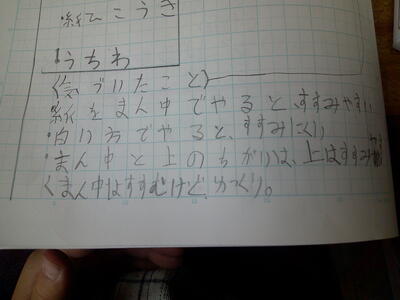 ・紙ひこうき
・うちわ
〈気づいたこと〉
・紙をまん中でやると、すすみやすい
・白い方でやると、すすみにくい
・まん中と上のちがいは、上はすすみ
くまん中はすすむけどゆっくり。